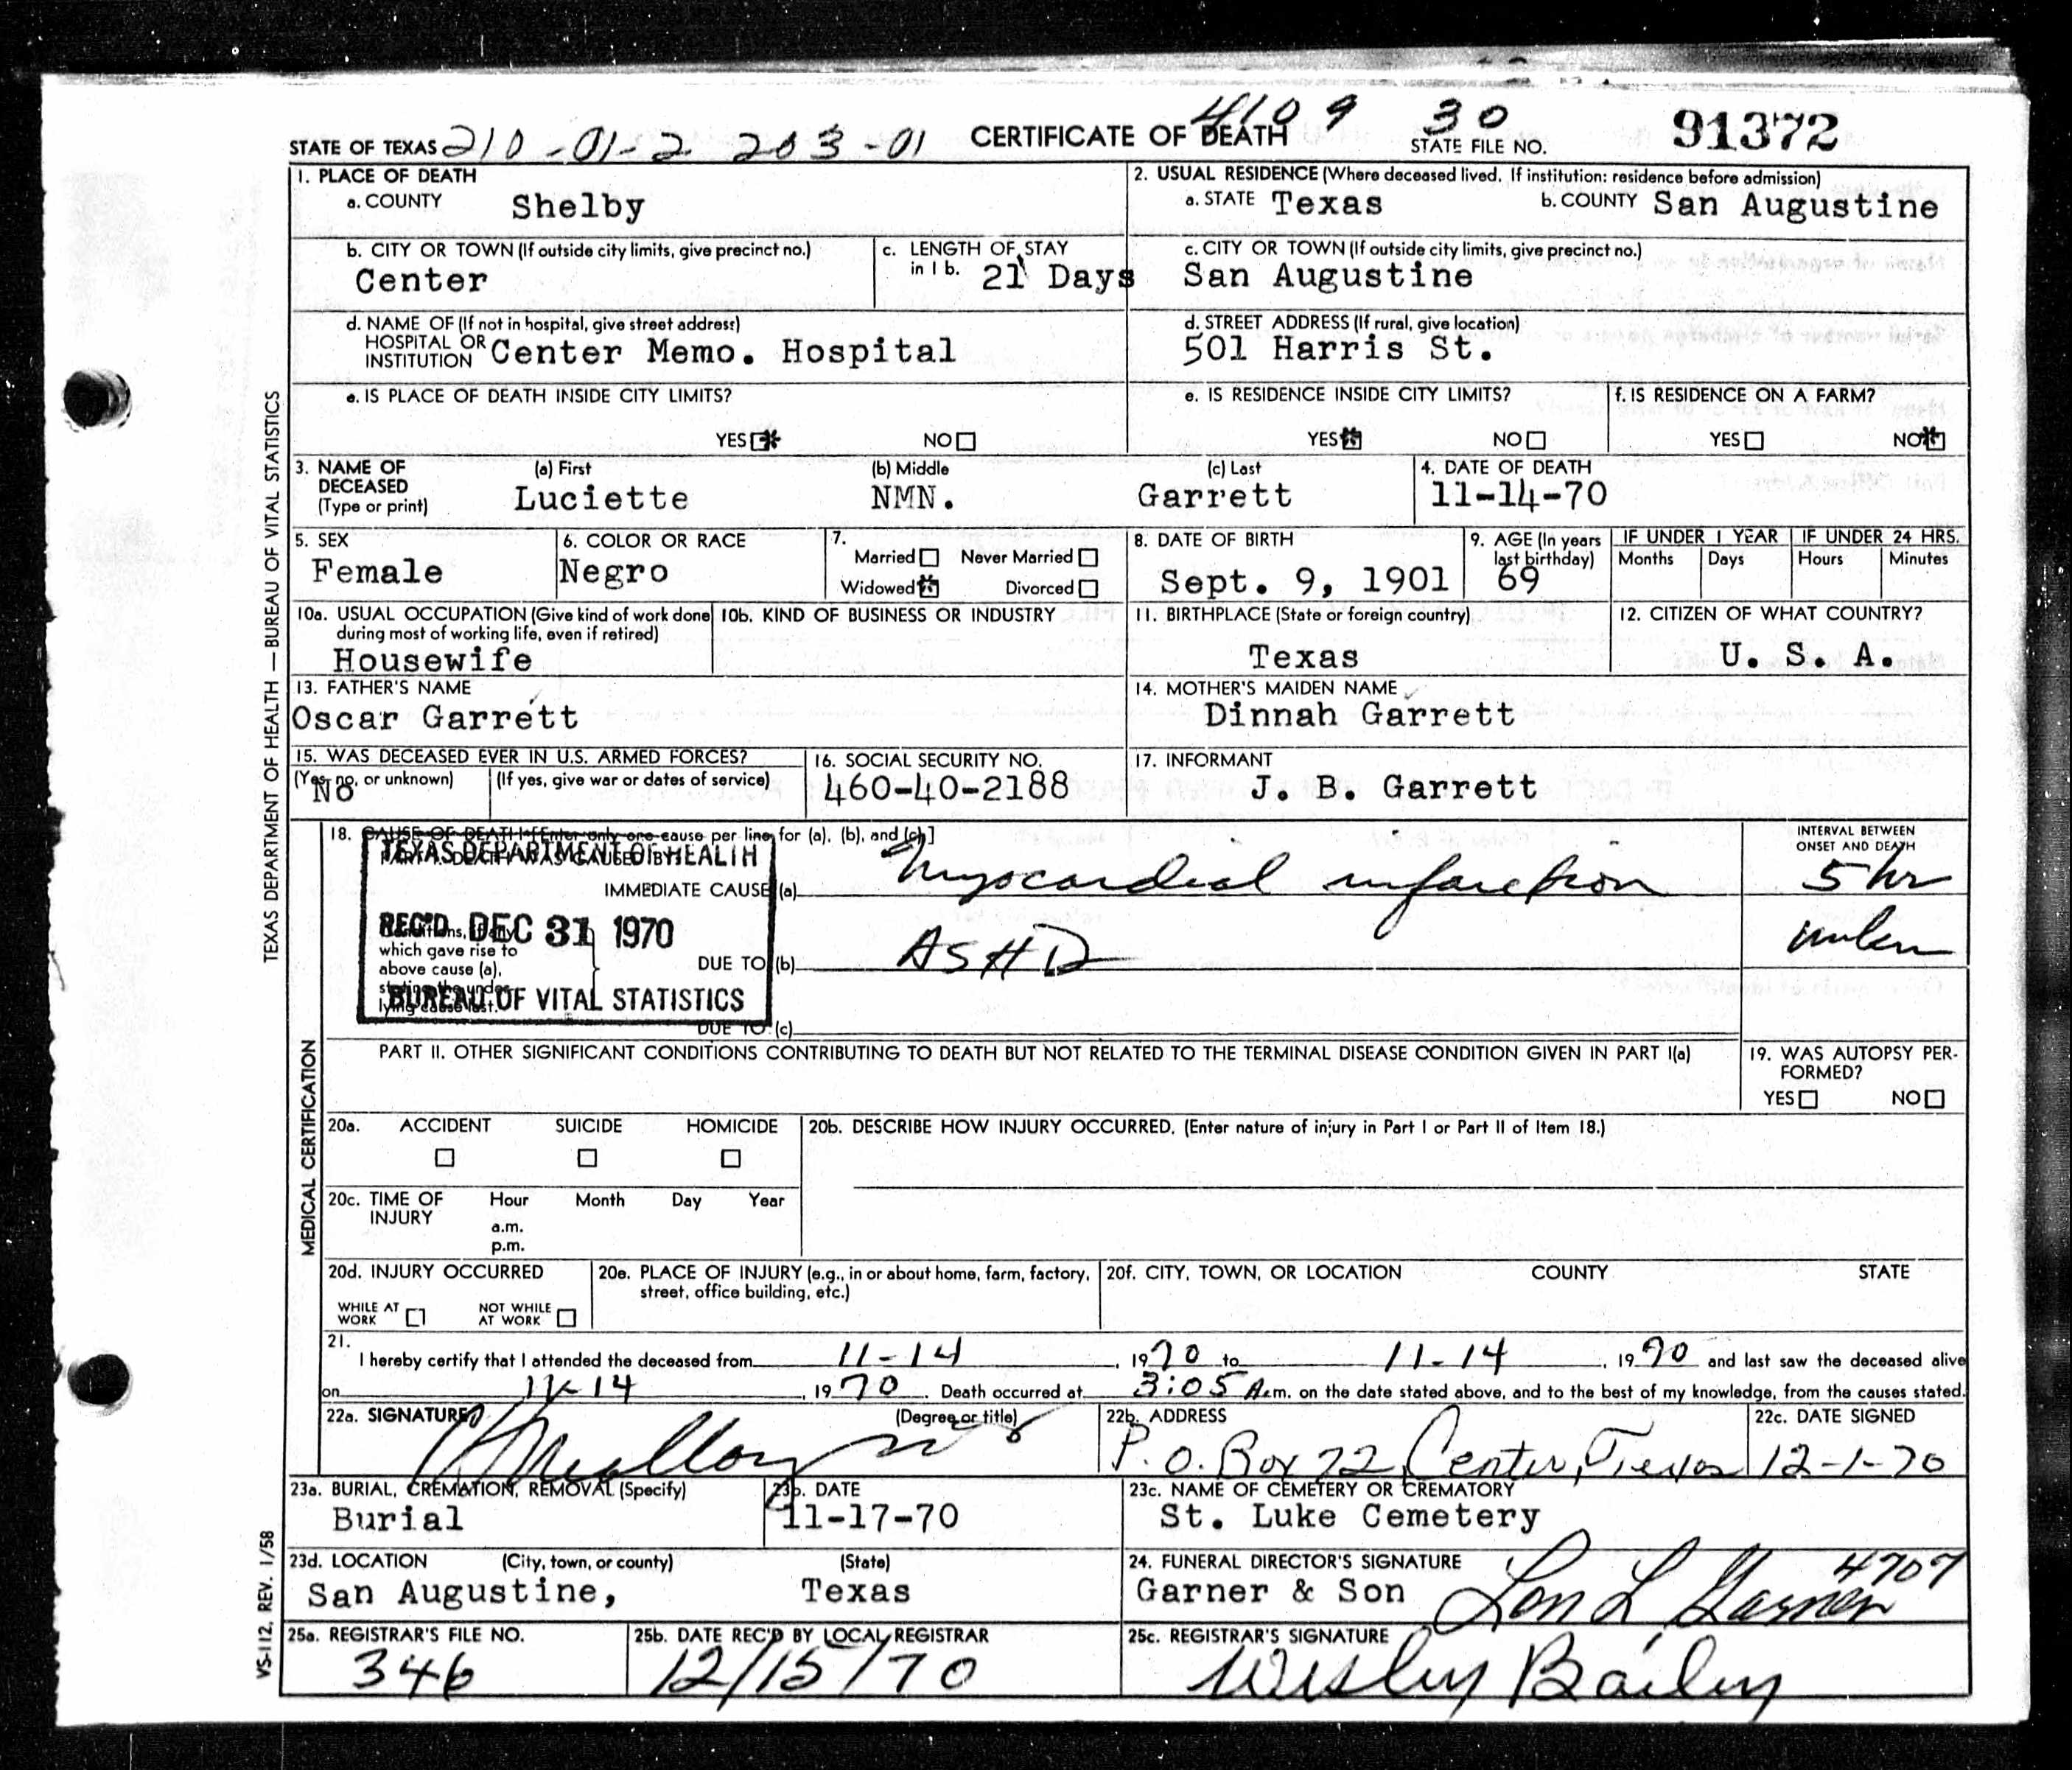 4109 30
STATE OF TEXAS 210-01-2 203-01 CERTIFICATE OF DEATH STATE FILE NO. 91372
1. PLACE OF DEATH
a. COUNTY Shelby
2. USUAL RESIDENCE (Where deceased lived. If institution: residence before admission)
a. STATE Texas b. COUNTY San Augustine
b. CITY OR TOWN (If outside city limits, give precinct no.)
Center
c. LENGTH OF STAY
in 1 b. 21 Days
c. CITY OR TOWN (If outside city limits, give precinct no.)
San Augustine
d. NAME OF (If not in hospital, give street address)
HOSPITAL OR
INSTITUTION Center Memo. Hospital
d. STREET ADDRESS (If rural, give location)
501 Harris St.
e. IS PLACE OF DEATH INSIDE CITY LIMITS?
YES NO
e. IS RESIDENCE INSIDE CITY LIMITS?
YES NO
f. IS RESIDENCE ON A FARM?
YES NO
3. NAME OF DECEASED
(Type or print)
(a) First (b) Middle (c) Last
Luciette NMN. Garrett
4. DATE OF DEATH
11-14-70
5. SEX
Female
6. COLOR OR RACE
Negro
7.
Married Never Married
Widowed Divorced
8. DATE OF BIRTH
Sept. 9, 1901
9. AGE (In years
last birthday)
69
IF UNDER 1 YEAR IF UNDER 24 HRS.
Months Days Hours Minutes
10a. USUAL OCCUPATION (Give kind of work done
during most of working life, even if retired)
Housewife
10b. KIND OF BUSINESS OR INDUSTRY
11. BIRTHPLACE (State or foreign country)
Texas
12. CITIZEN OF WHAT COUNTRY?
U. S. A.
13. FATHER'S NAME
Oscar Garrett
14. MOTHER'S MAIDEN NAME
Dinnah Garrett
15. WAS DECEASED EVER IN U.S. ARMED FORCES?
(Yes, no, or unknown) (If yes, give war or dates of service)
No
16. SOCIAL SECURITY NO.
460-40-2188
17. INFORMANT
J. B. Garrett
18. CAUSE OF DEATH [Enter only one cause per line for (a), (b), and (c).]
PART I. DEATH WAS CAUSED BY:
TEXAS DEPARTMENT OF HEALTH
REC'D DEC 31 1970
BUREAU OF VITAL STATISTICS
IMMEDIATE CAUSE (a) Myocardial infarction
INTERVAL BETWEEN
ONSET AND DEATH
5 hr
Conditions, if any,
which gave rise to
above cause (a),
stating the under-
lying cause last.
DUE TO (b) ASHD
DUE TO (c)
PART II. OTHER SIGNIFICANT CONDITIONS CONTRIBUTING TO DEATH BUT NOT RELATED TO THE TERMINAL DISEASE CONDITION GIVEN IN PART I(a)
19. WAS AUTOPSY PER-
FORMED?
YES NO
20a. ACCIDENT SUICIDE HOMICIDE
20b. DESCRIBE HOW INJURY OCCURRED. (Enter nature of injury in Part I or Part II of Item 18.)
20c. TIME OF
INJURY
Hour Month Day Year
a.m.
p.m.
20d. INJURY OCCURRED
WHILE AT
WORK
NOT WHILE
AT WORK
20e. PLACE OF INJURY (e.g., in or about home, farm, factory,
street, office building, etc.)
20f. CITY, TOWN, OR LOCATION COUNTY STATE
21.
I hereby certify that I attended the deceased from 11-14, 1970 to 11-14, 1970 and last saw the deceased alive
on 11-14, 1970. Death occurred at 3:05 A.m. on the date stated above, and to the best of my knowledge, from the causes stated.
22a. SIGNATURE (Degree or title)
22b. ADDRESS
P.O. Box 72 Center, Texas
22c. DATE SIGNED
12-1-70
23a. BURIAL, CREMATION, REMOVAL (Specify)
Burial
23b. DATE
11-17-70
23c. NAME OF CEMETERY OR CREMATORY
St. Luke Cemetery
23d. LOCATION (City, town, or county) (State)
San Augustine, Texas
24. FUNERAL DIRECTOR'S SIGNATURE
Garner & Son Lon L Garner 4707
25a. REGISTRAR'S FILE NO.
346
25b. DATE REC'D BY LOCAL REGISTRAR
12/15/70
25c. REGISTRAR'S SIGNATURE
Wesley Bailey
TEXAS DEPARTMENT OF HEALTH — BUREAU OF VITAL STATISTICS
MEDICAL CERTIFICATION
VS-112, REV. 1/58